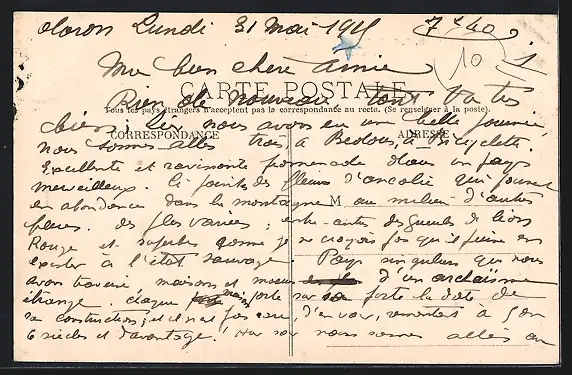 Oloron Lundi 31 Mai 1915 7h40
10 1
Ma bien chère amie
CARTE POSTALE
Rien de nouveau tout va très
Tous les pays étrangers n'acceptent pas la correspondance au recto. (Se renseigner à la poste).
bien. Hier nous avons eu une belle journée
CORRESPONDANCE ADRESSE
Nous sommes allés tous, à Bedous, à bicyclette.
Excellente et ravissante promenade dans un pays
merveilleux. Ci joint des fleurs d'ancolie qui poussent
en abondance dans la montagne M au milieu d'autres
fleurs des plus variées; entre autres des gueules de lions
Rouge et superbes comme je ne croyais pas qu'il puisse en
exister à l'état sauvage. Pays singulier que nous
avons traversé maisons et moeurs d'un archaïsme
étrange. Chaque maison porte sur sa porte la date de
sa construction; et il n'est pas rare, d'en voir, remontant à 5 ou
6 siècles et d'avantage! Hier soir nous sommes allés au